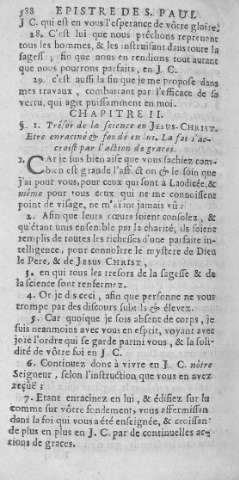 588 EPISTRE DE S. PAUL
J C. qui est en vous l'esperance de vôtre gloire,
28. C'est lui que nous prêchons reprenant
tous les hommes, & les instruisant dans toute la
sagesse, afin que nous en rendions tout autant
que nous pourrons parfaits, en J. C.
29. c'est aussi la fin que je me propose dans
mes travaux, combattant par l'efficace de sa
vertu, qui agit puissamment en moi.
CHAPITRE II.
§. 1. Trésor de la science en JESUS-CHRIST.
Etre enraciné & fondé en lui. La foi s'ac-
croist par l'action de graces.
1. CAr je suis bien aise que vous sachiez com-
bien est grande l'affection & le soin que
j'ai pour vous, pour ceux qui sont à Laodicée, &
même pour tous ceux qui ne me connoissent
point de visage, ne m'aïant jamais vû;
2. Afin que leurs cœurs soient consolez, &
qu'étant unis ensemble par la charité, ils soient
remplis de toutes les richesses d'une parfaite in-
telligence, pour connoître le mystere de Dieu
le Pere, & de JESUS CHRIST,
3. en qui tous les tresors de la sagesse & de
la science sont renfermez.
4. Or je dis ceci, afin que personne ne vous
trompe par des discours subtils & élevez.
5. Car quoique je sois absent de corps, je
suis neanmoins avec vous en esprit, voyant avec
joie l'ordre qui se garde parmi vous, & la soli-
dité de vôtre foi en J. C.
6. Continuez donc à vivre en J. C. nôtre
Seigneur, selon l'instruction que vous en avez
reçuë:
7. Etant enracinez en lui, & édifiez sur lui
comme sur vôtre fondement, vous affermissant
dans la foi qui vous a été enseignée, & croissant
de plus en plus en J. C. par de continuelles ac-
tions de graces.